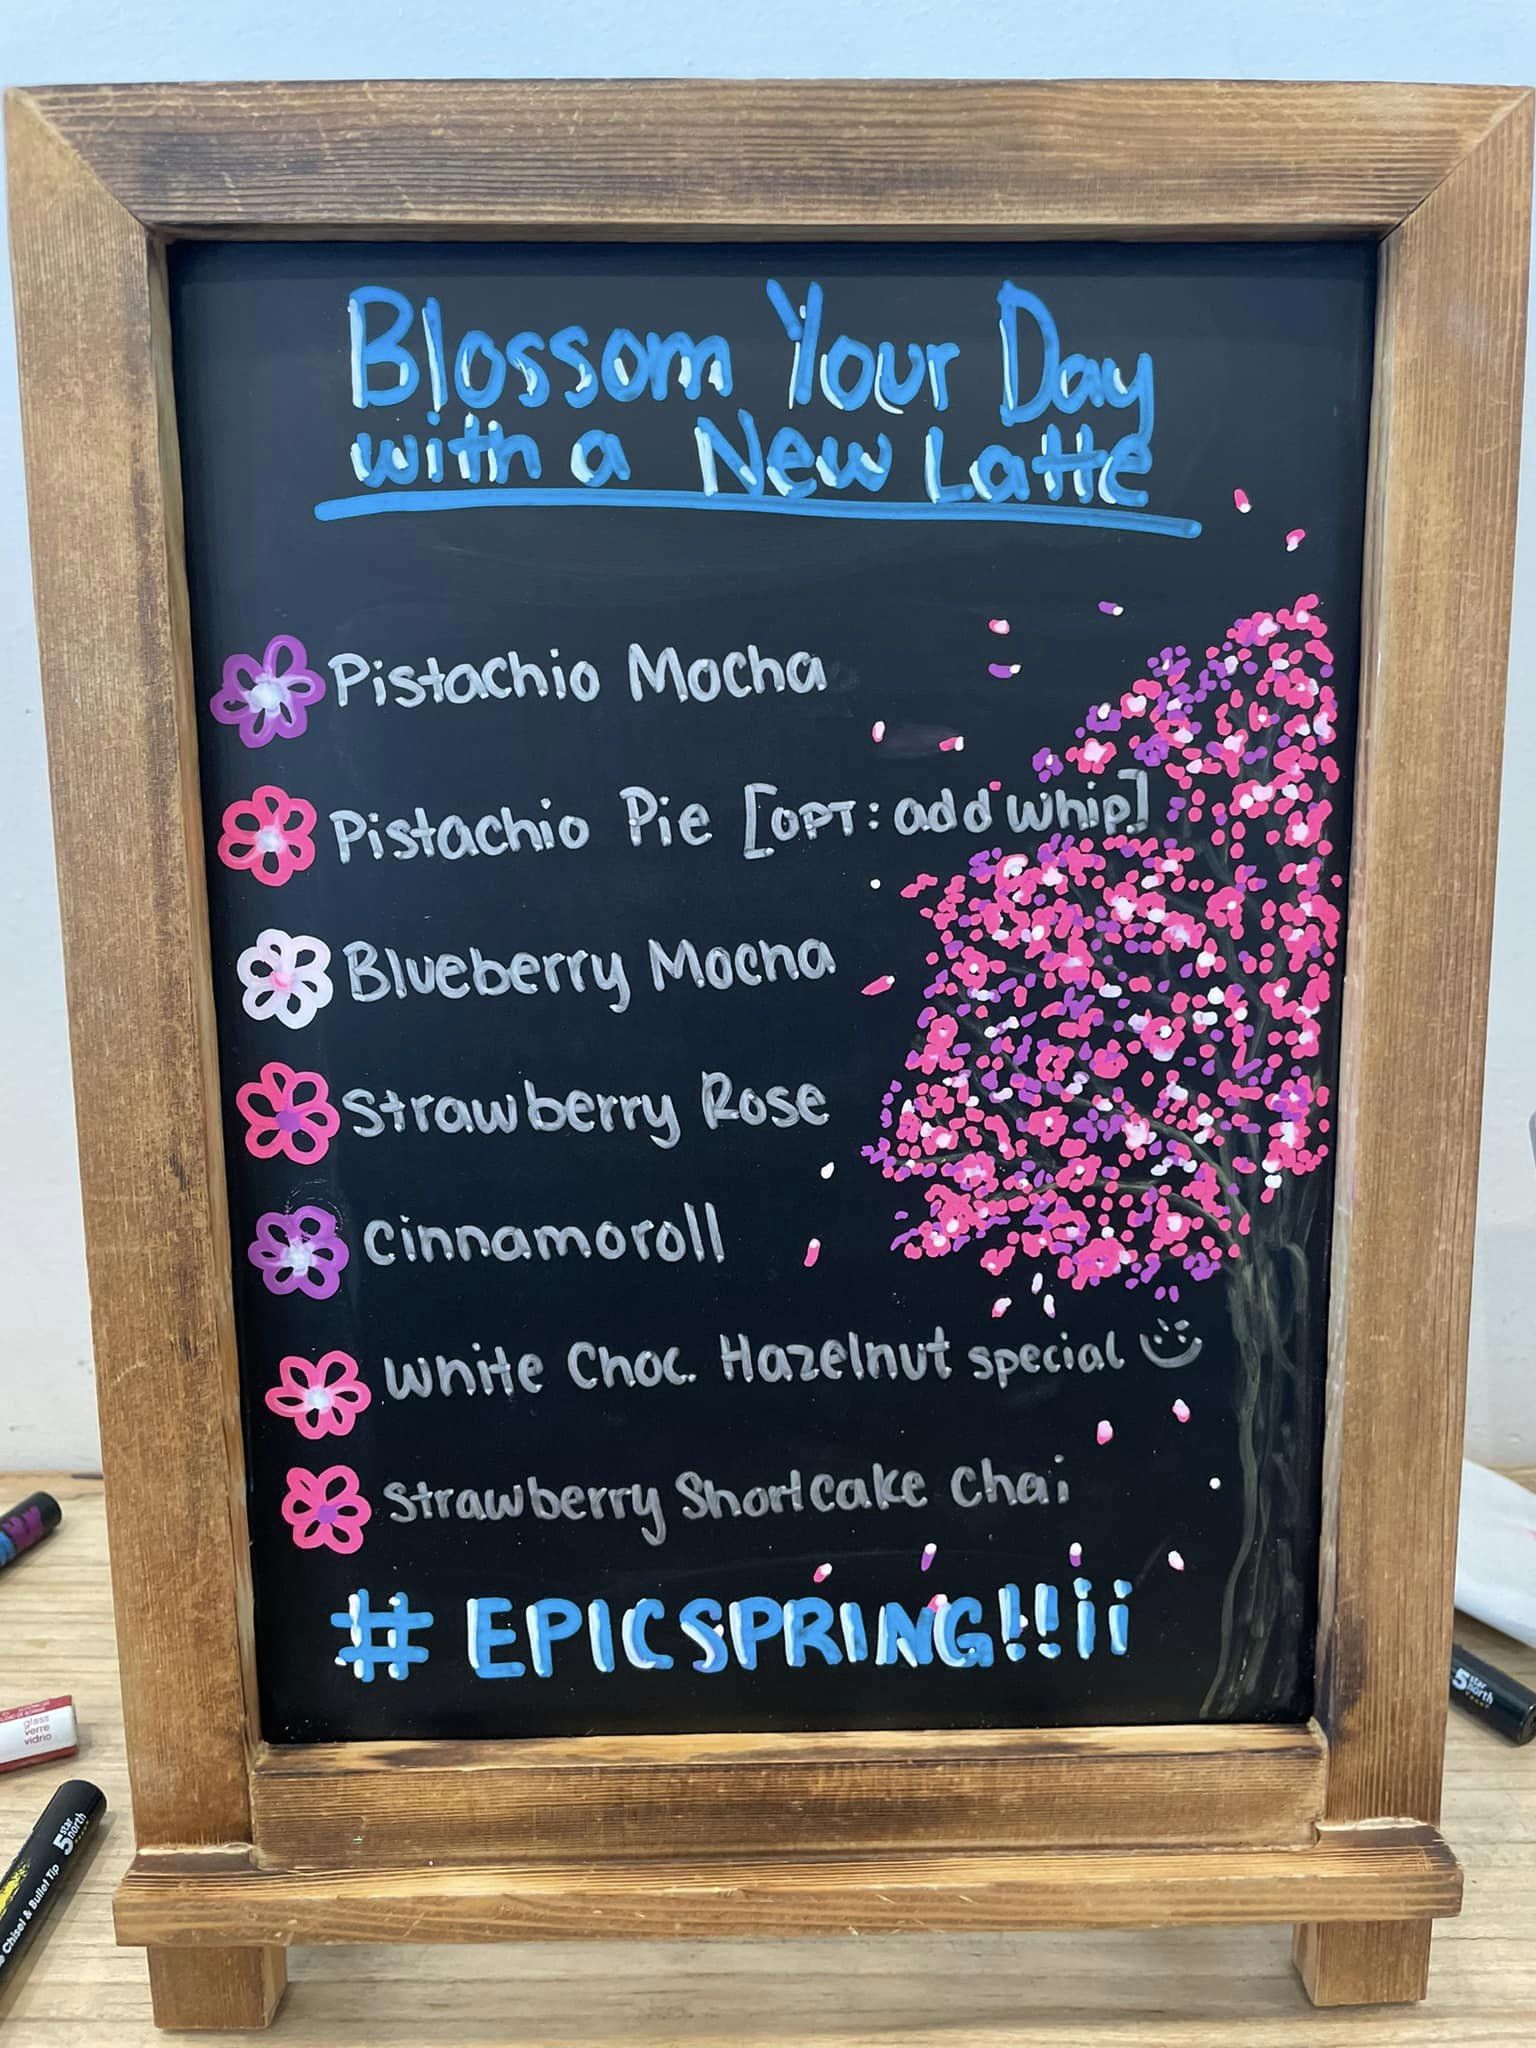 Blossom Your Day
with a New Latte
Pistachio Mocha
Pistachio Pie [OPT: add whip]
Blueberry Mocha
Strawberry Rose
Cinnamoroll
White Choc. Hazelnut special
Strawberry Shortcake Chai
# EPICSPRING!!¡¡
glass
verre
vidrio
5 star
north
Chisel & Bullet Tip
5 star
north